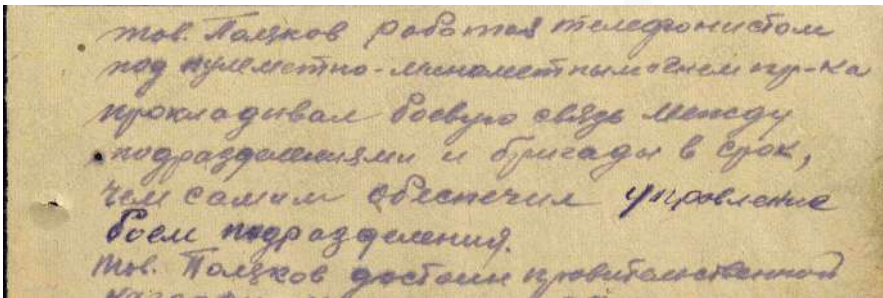 тов. Поляков работая телефонистом
под пулеметно-минометным огнем пр-ка
прокладывал боевую связь между
подразделениями и бригады в срок,
чем самим обеспечил управление
боем подразделения.
тов. Поляков достоин правительственной